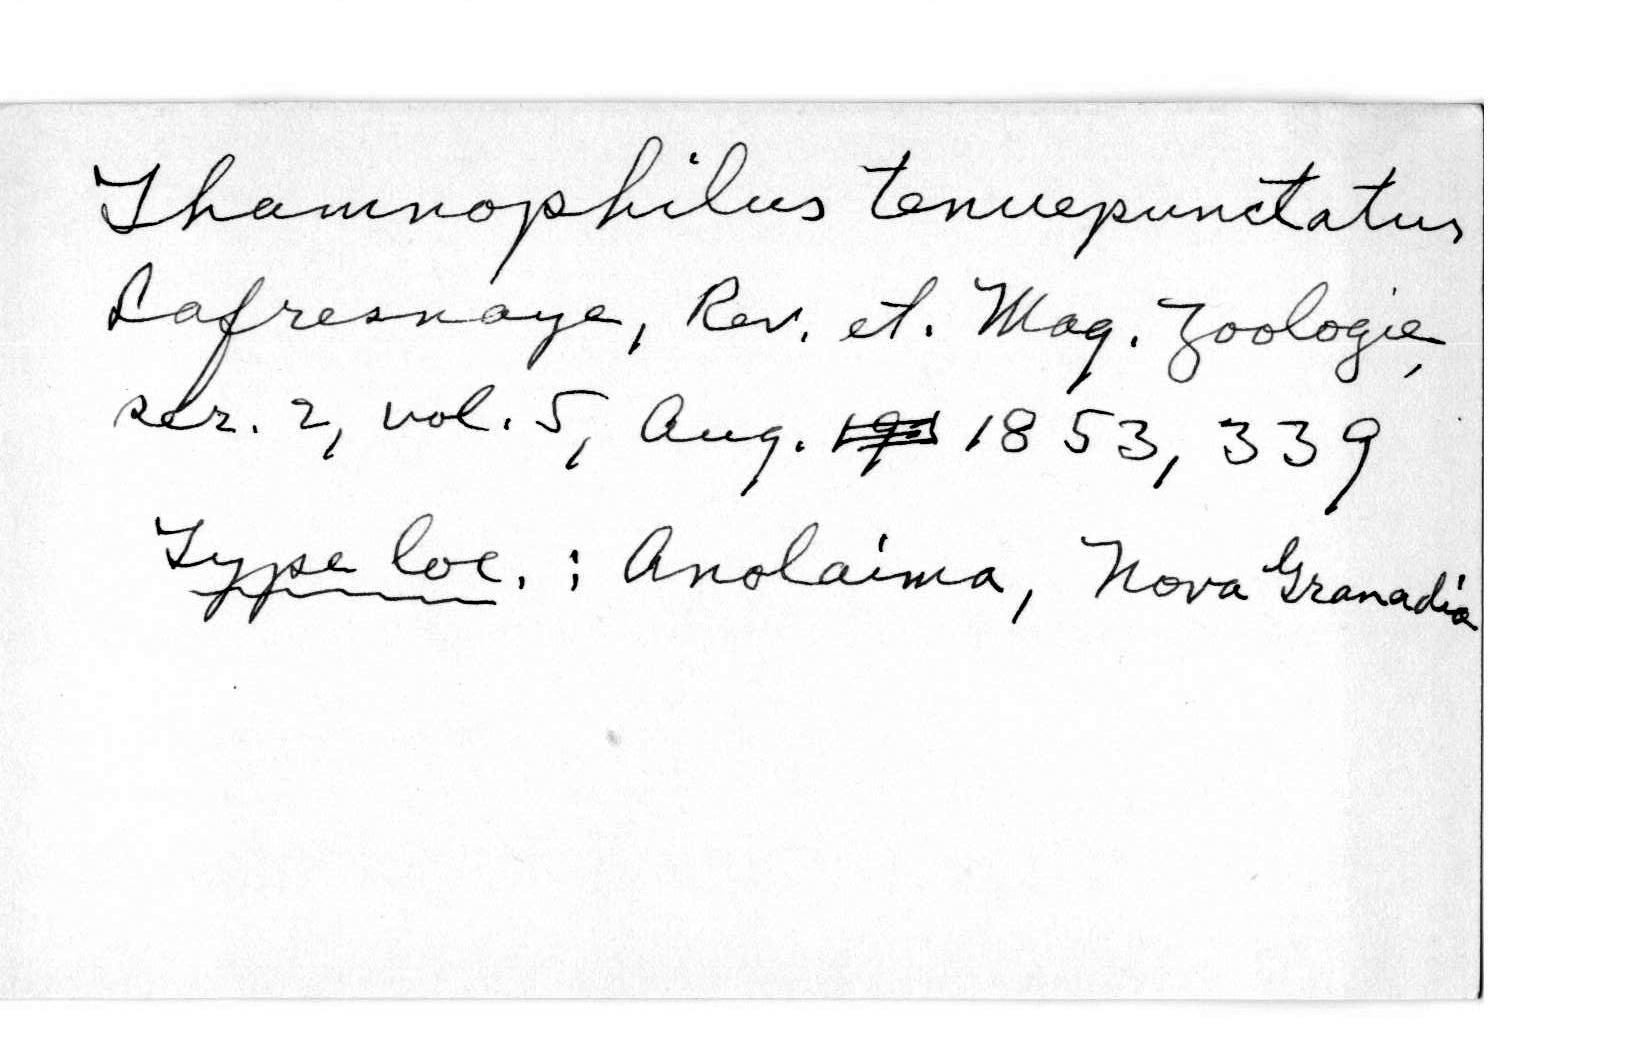 Thamnophilus tenuepunctatus
Lafresnaye, Rev. et. Mag. Zoologie,
ser. 2, vol. 5, Aug. 1853, 339
Type loc. : Anolaima, Nova Granadia